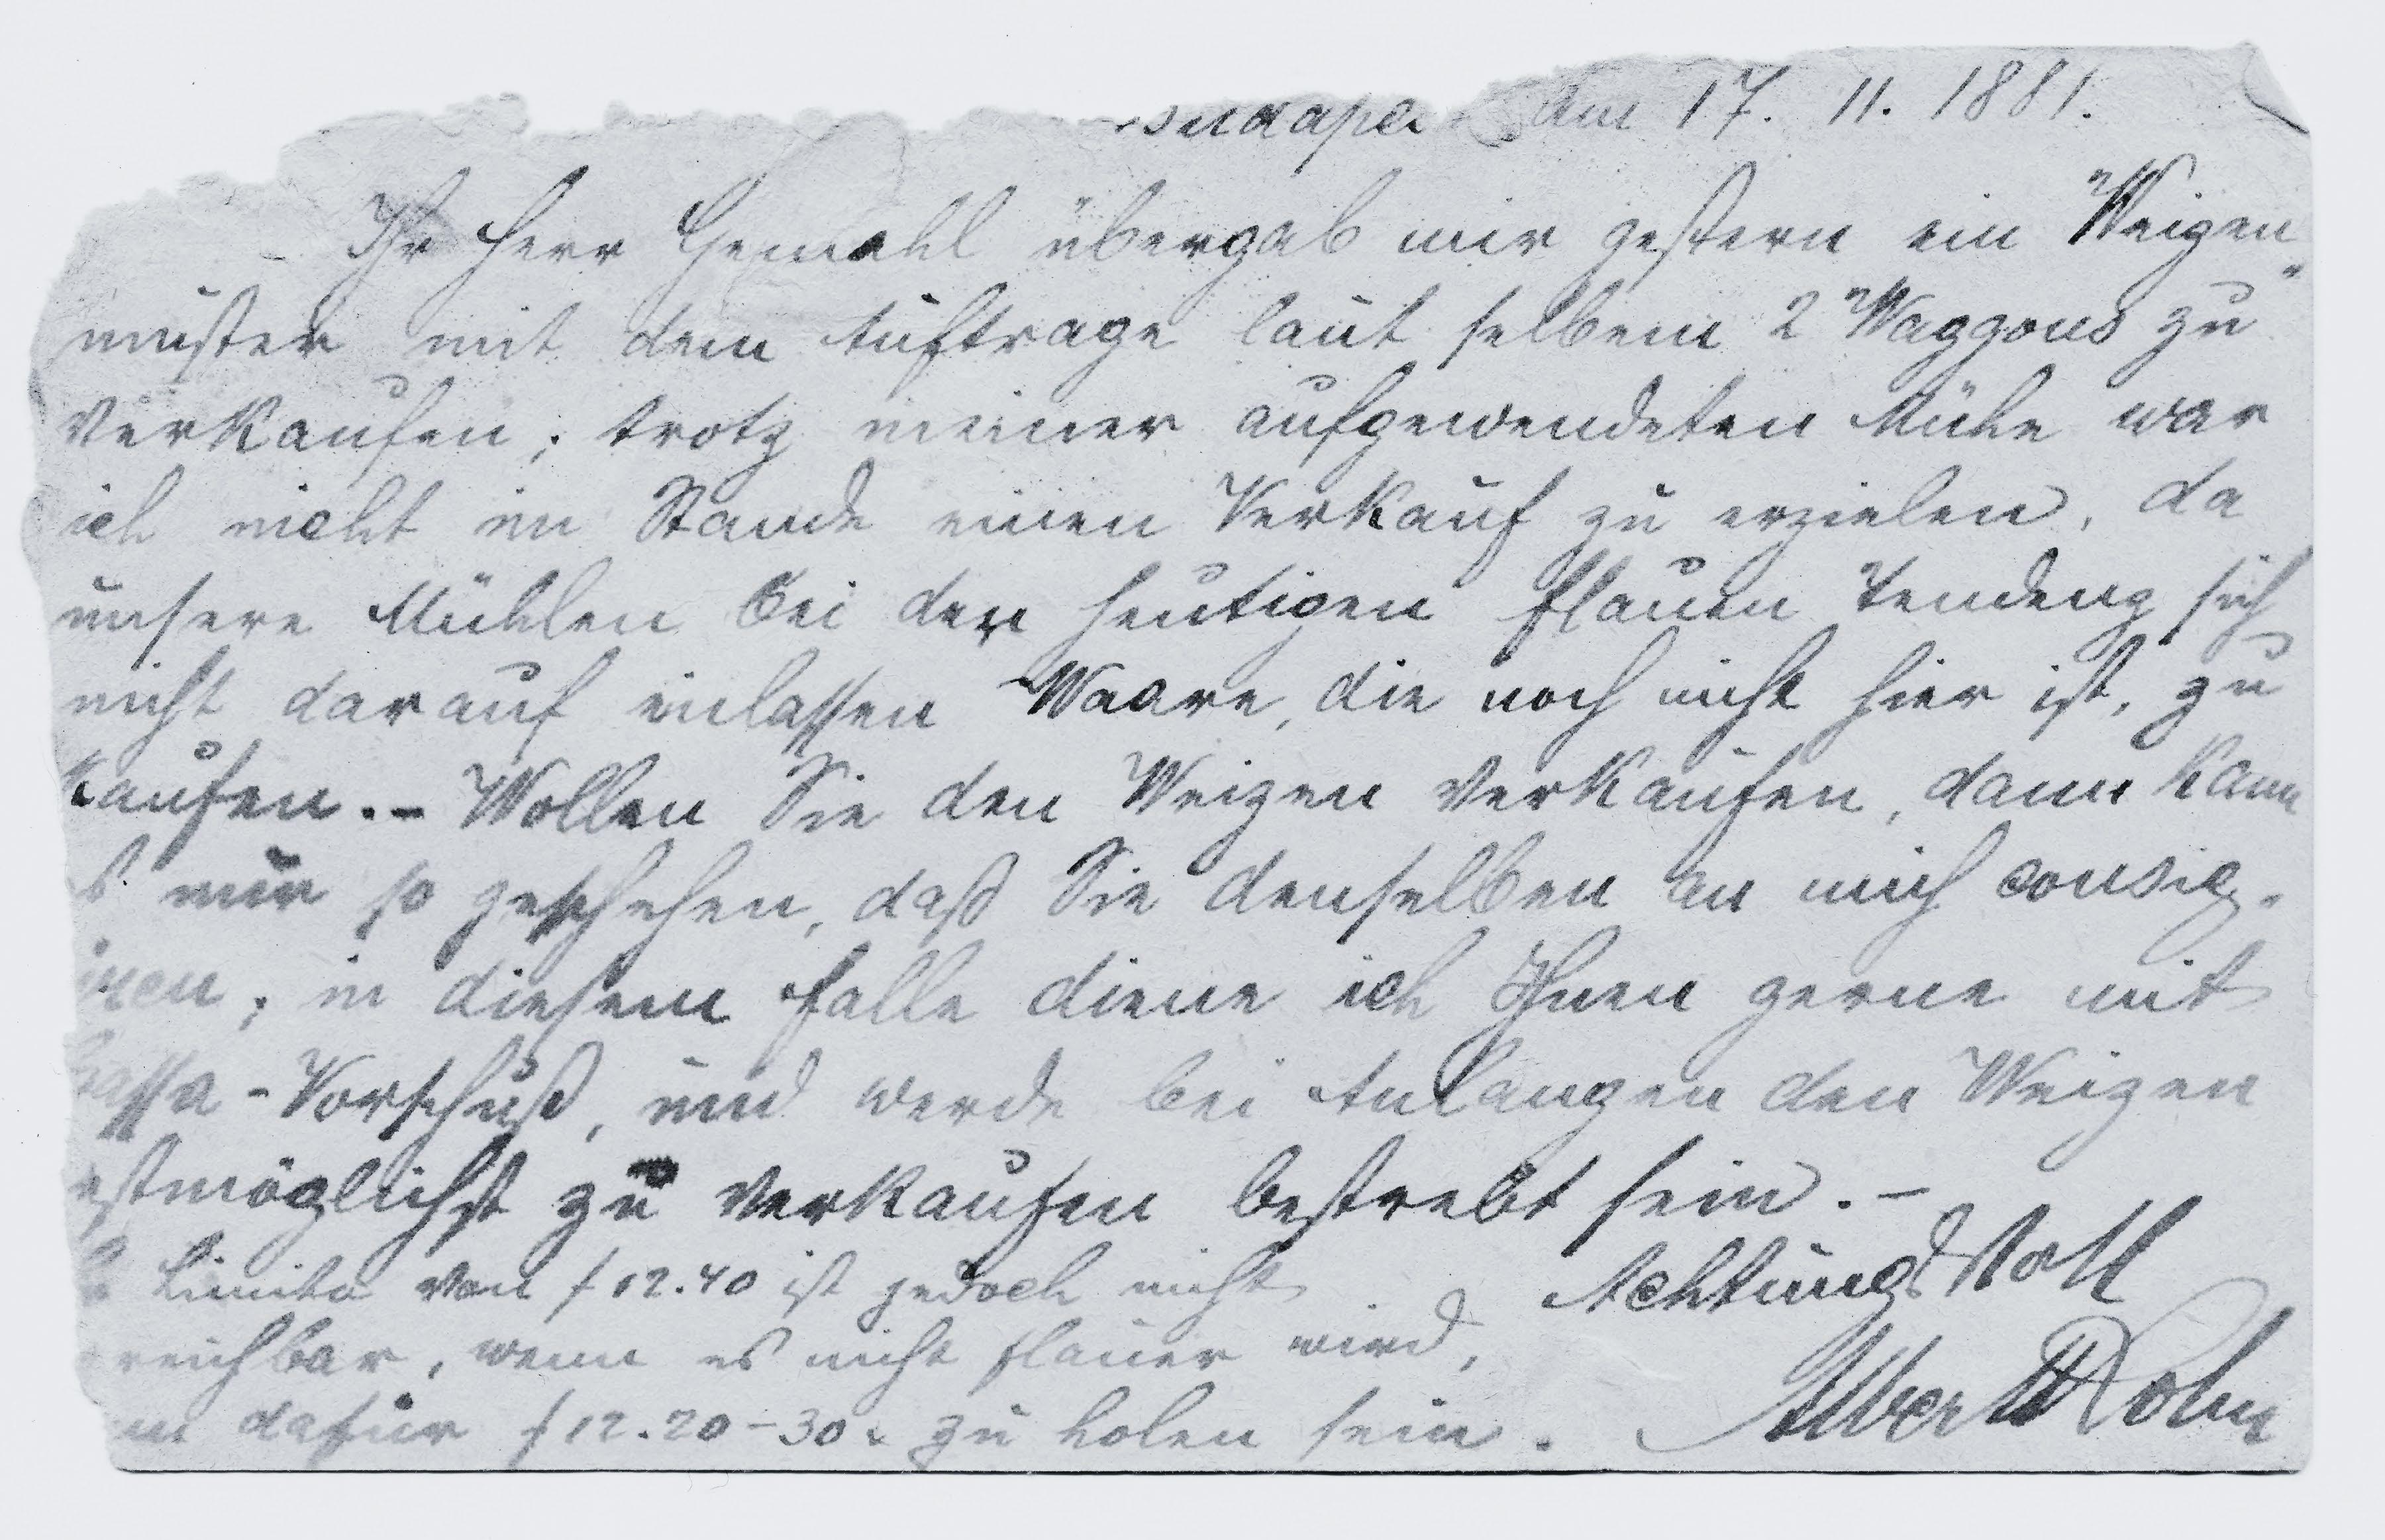 am 17. 11. 1881.
Ihr Herr Gemahl übergab mir gestern ein Weizen„
muster mit dem Auftrage laut selbem 2 Waggons zu
verkaufen; trotz meiner aufgewendeten Mühe war
ich nicht im Stande einen Verkauf zu erzielen, da
unsere Mühlen bei der heutigen flauen Tendenz sich
nicht darauf einlassen Waare, die noch nicht hier ist, zu
kaufen. – Wollen Sie den Weizen verkaufen, dann kann
nur so geschehen, daß Sie denselben an mich consig-
iren; in diesem Falle diene ich Ihnen gerne mit
Cassa-Vorschuß, und werde bei Anlangen den Weizen
estmöglichst zu verkaufen bestrebt sein. –
Limito von f 12.40 ist jedoch nicht
reichbar, wenn es nicht flauer wird,
dafür f 12.20-30 zu holen sein.
Achtungsvoll
Albert Kohn